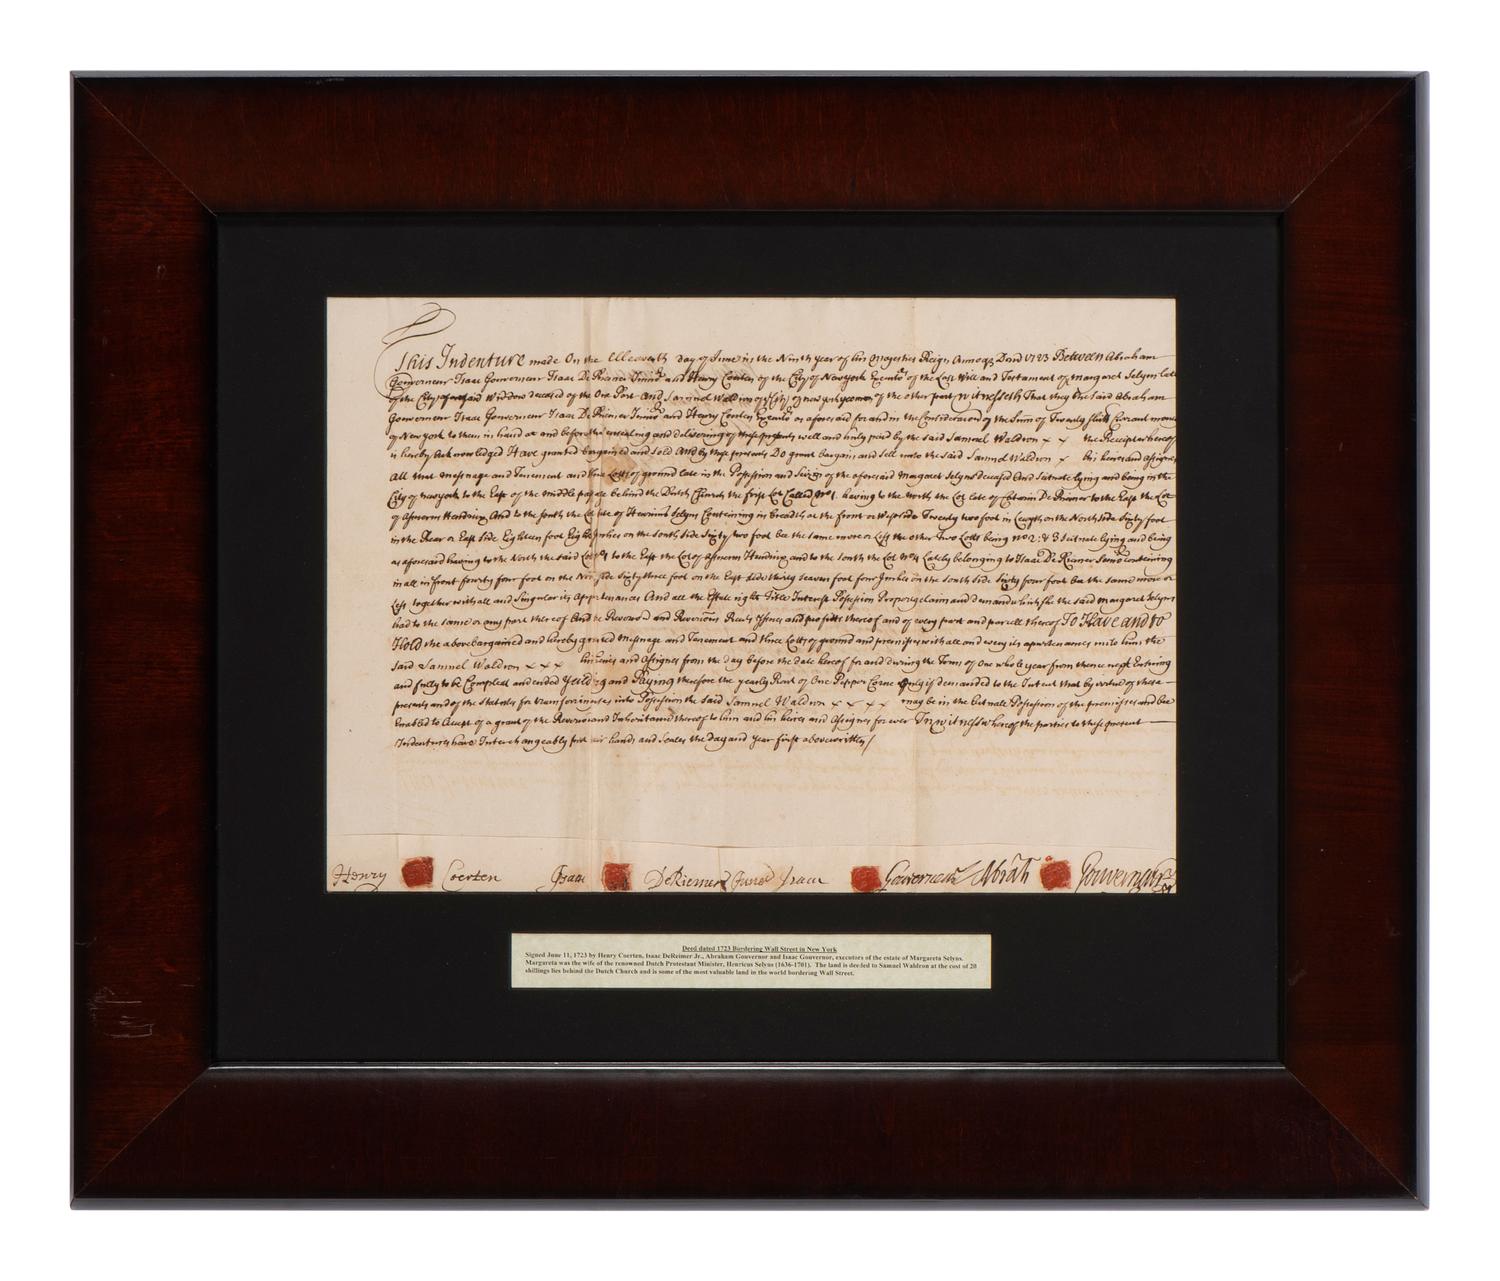 This Indenture made On the Elleventh day of June in the Ninth year of his Majesties Reign Annoq Dmd 1723 Between Abraham
Gouverneur Isaac Gouverneur Isaac DeRiemer Junior and Henry Coerten of the City of New york Executrs of the Last Will and Testament of Margaret Selyns late
of the City aforesaid Widdow deceased of the One Part And Samuel Waldron of the City of new york yeoman of the other part Witnesseth That they the said Abraham
Gouverneur Isaac Gouverneur Isaac DeRiemer Junior and Henry Coerten Executrs as aforesaid for and in the Consideration of the Sum of Twenty shill Currant money
of New york to them in hand at and before the ensealing and delivering of these presents well and truly paid by the said Samuel Waldron x x the Receipt whereof
is hereby Acknowledged Have granted bargained and sold And by these presents Do grant bargain and sell unto the said Samuel Waldron x his heires and Assignes
All that Messuage and Tenement and three Lotts of ground late in the Possession and Seizen of the aforesaid Margaret Selyns deceased And Scituate lying and being in the
City of new york to the East of the middle passage behind the Dutch Church the first Lot Called No 1. having to the North the Lot late of DeRiemer to the East the Lot
of Asweris Hendrix And to the South the Lot late of Henricus Selyns Containing in breadth at the front or West side Twenty two foot in Length on the North side Sixty foot
in the Rear or East Side Eighteen foot Eight Inches on the South side Sixty two foot bee the same more or Less the other two Lotts being No 2: & 3 scituate lying and being
as aforesaid having to the North the said Lot No 1 to the East the Lot of Asweris Hendrix and to the South the Lot No 4 Lately belonging to Isaac DeRiemer Senr containing
in all in front fourty four foot on the North side Sixty three foot on the East side thirty seaven foot four Inches on the South side Sixty four foot bee the same more or
Less together with all and Singular its Appurtenances And all the Estate right Title Interest Possession Property claim and demand which she the said Margaret Selyns
had to the same or any part thereof And the Reverson and Reversions Rents Issues and profitts thereof and of every part and parcell thereof To Have and to
Hold the above bargained and hereby granted Messuage and Tenement and three Lotts of ground and premisses with all and every its apurtenances unto him the
said Samuel Waldron x x x his heires and Assignes from the day before the date hereof for and during the Term of One whole year from thence next Ensuing
and fully to be Compleat and ended Yeilding and Paying therefore the yearly Rent of One Pepper Corne Only if demanded to the Intent that by virtue of these
presents and of the Statutes for transforming uses into Possession the said Samuel Waldron x x x x may be in the Actuale Possession of the premisses and bee
Enabled to Accept of a grant of the Reverson and Inheritance thereof to him and his heires and Assignes for ever In Witness whereof the parties to these present
Indentures have Interchangeably put their hands and Seales the Day and Year first above written/
Henry Coerten Isaac DeRiemer Junor Isaac Gouverneur Abrah Gouverneur
Deed dated 1723 Bordering Wall Street in New York
Signed June 11, 1723 by Henry Coerten, Isaac DeReimer Jr., Abraham Gouvernor and Isaac Gouvernor, executors of the estate of Margareta Selyns.
Margareta was the wife of the renowned Dutch Protestant Minister, Henricus Selyns (1636-1701). The land is deeded to Samuel Waldron at the cost of 20
shillings lies behind the Dutch Church and is some of the most valuable land in the world bordering Wall Street.